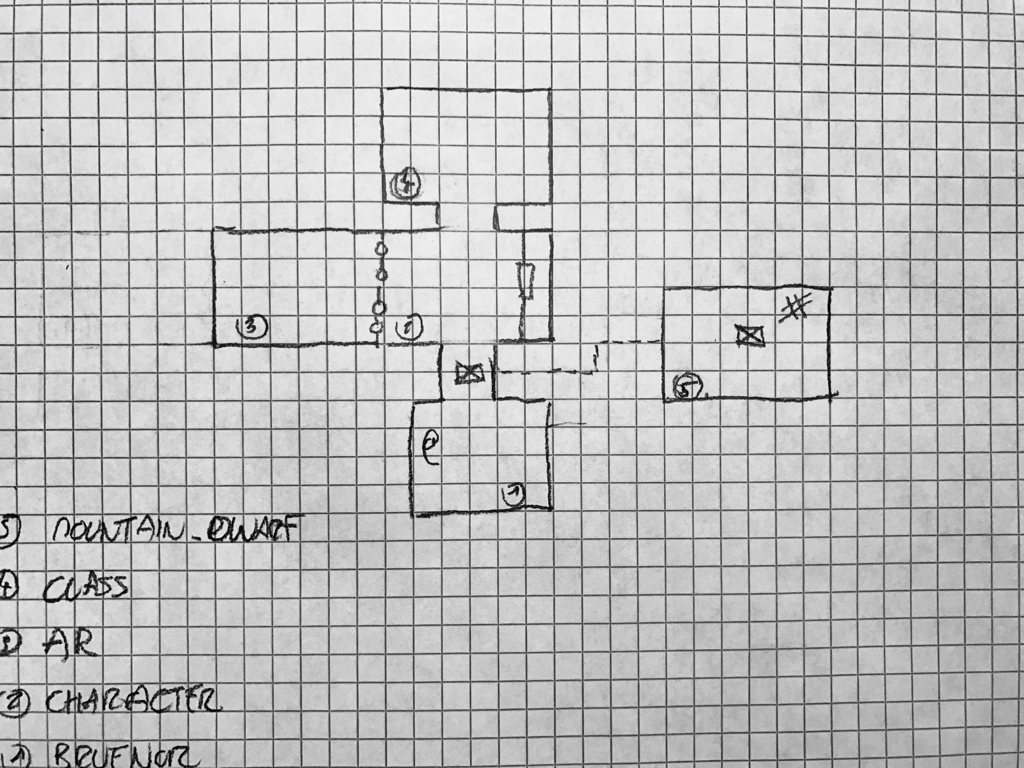 ④
#
③ ②
⑤
@
①
⑤ MOUNTAIN_DWARF
④ CLASS
③ AR
② CHARACTER
① BRUENOR